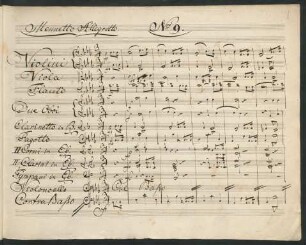 Menuetto Allegretto No 9.
Violini
Viola
Flauto
Due Oboi
Clarinetto in B
Fagotto
II Corni in Es
II Clarini in Es
Tympani in Es
Violoncello Col Basso
Contra Basso